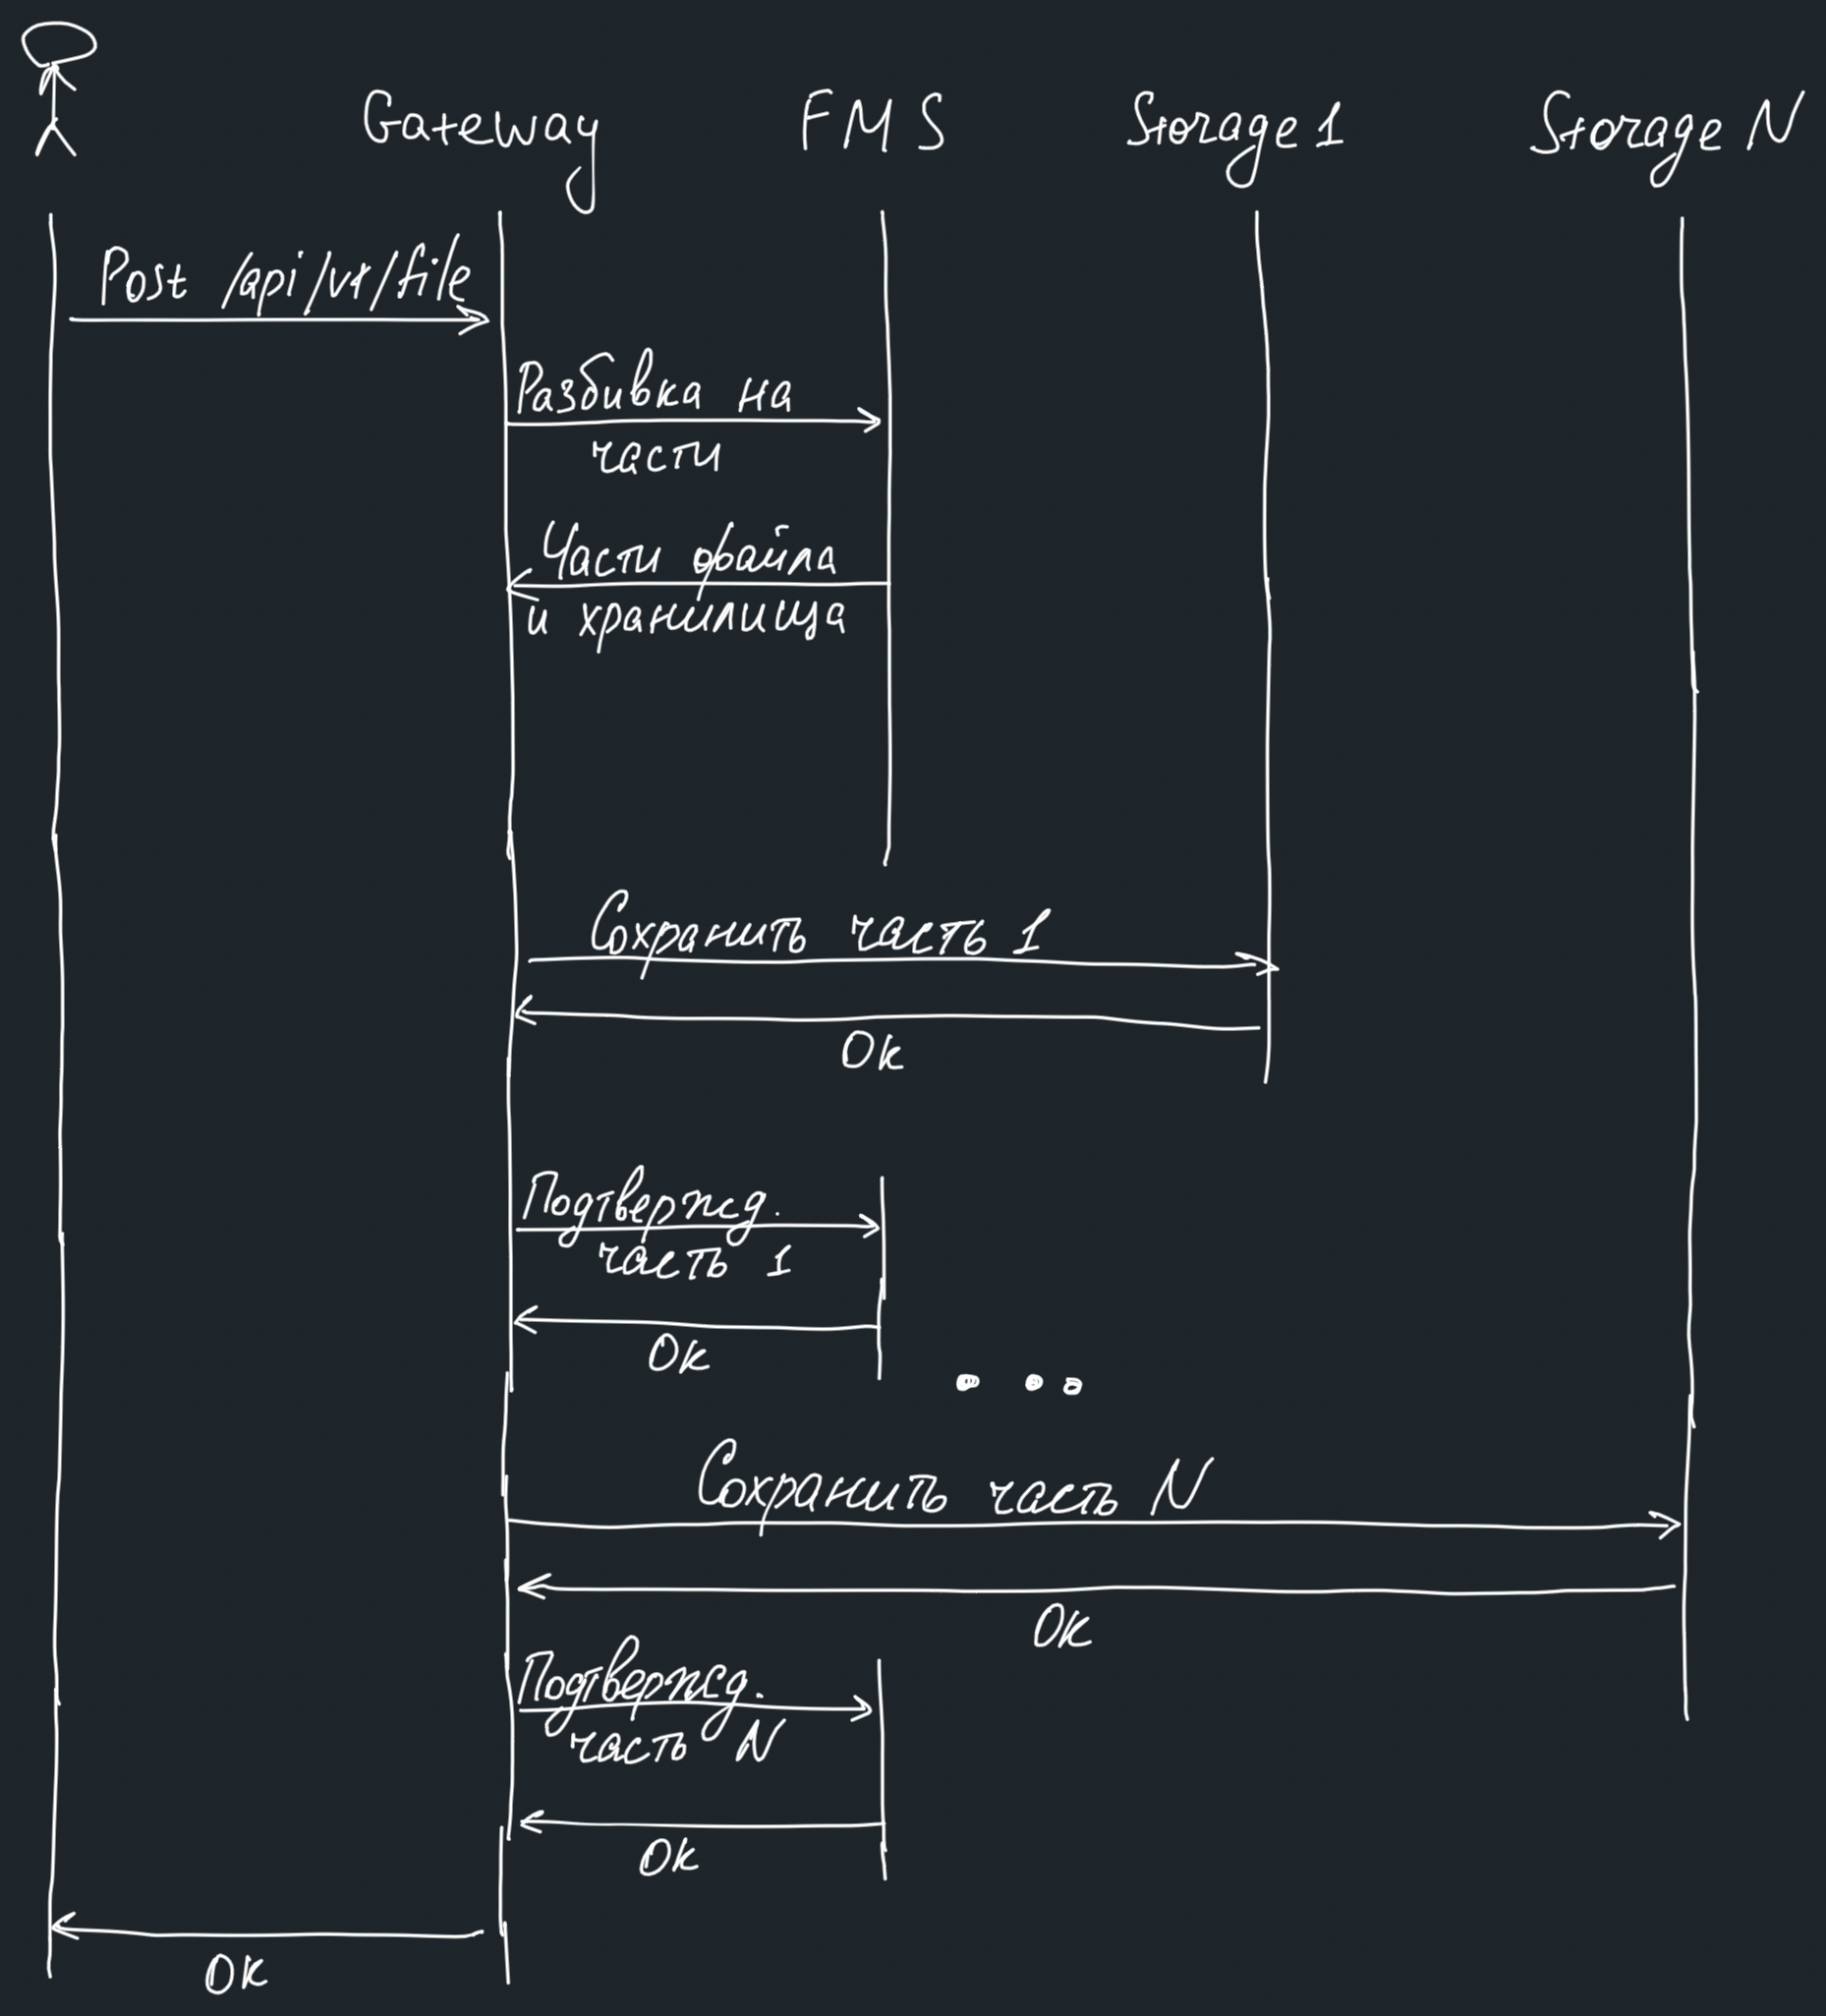 Gateway
FMS
Storage 1
Storage N
Post /api/v1/file
Разбивка на
части
Части файла
и хранилища
Сохранить часть 1
Ok
Подтвержд.
часть 1
Ok
Сохранить часть N
Ok
Подтвержд.
часть N
Ok
Ok